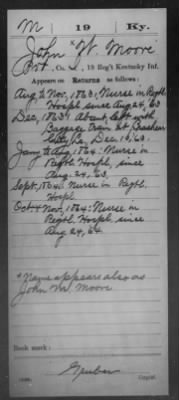 M | 19 | Ky.
John W. Moore
Pvt., Co. , 19 Reg't Kentucky Inf.
Appears on Returns as follows:
Aug to Nov, 1863, Nurse in Regtl
Hospl since Aug 24, 63
Dec, 1863, Absent, left with
Baggage train at
La, Dec 13, 63.
Jany to Aug, 1864: Nurse in
Regtl Hospl, since
Aug. 24, 63.
Sept, 1864, Nurse in Regtl.
Hospl
Oct & Nov, 1864: Nurse in
Regtl. Hospl since
Aug 24, 64.
*Name appears also as
John M. Moore
Book mark:
Gruber
Copyist.